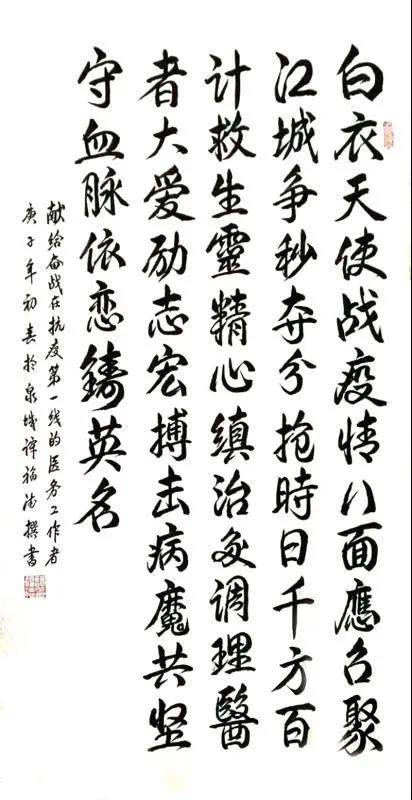 白衣天使战疫情八面應召聚
江城争秒夺分抢時日千方百
计救生靈精心缜治调理醫
者大爱励志宏搏击病魔共坚
守血脉依恋鑄英名
献给奋战在抗疫第一线的医务工作者
庚子年初春於泉城谭福撰書